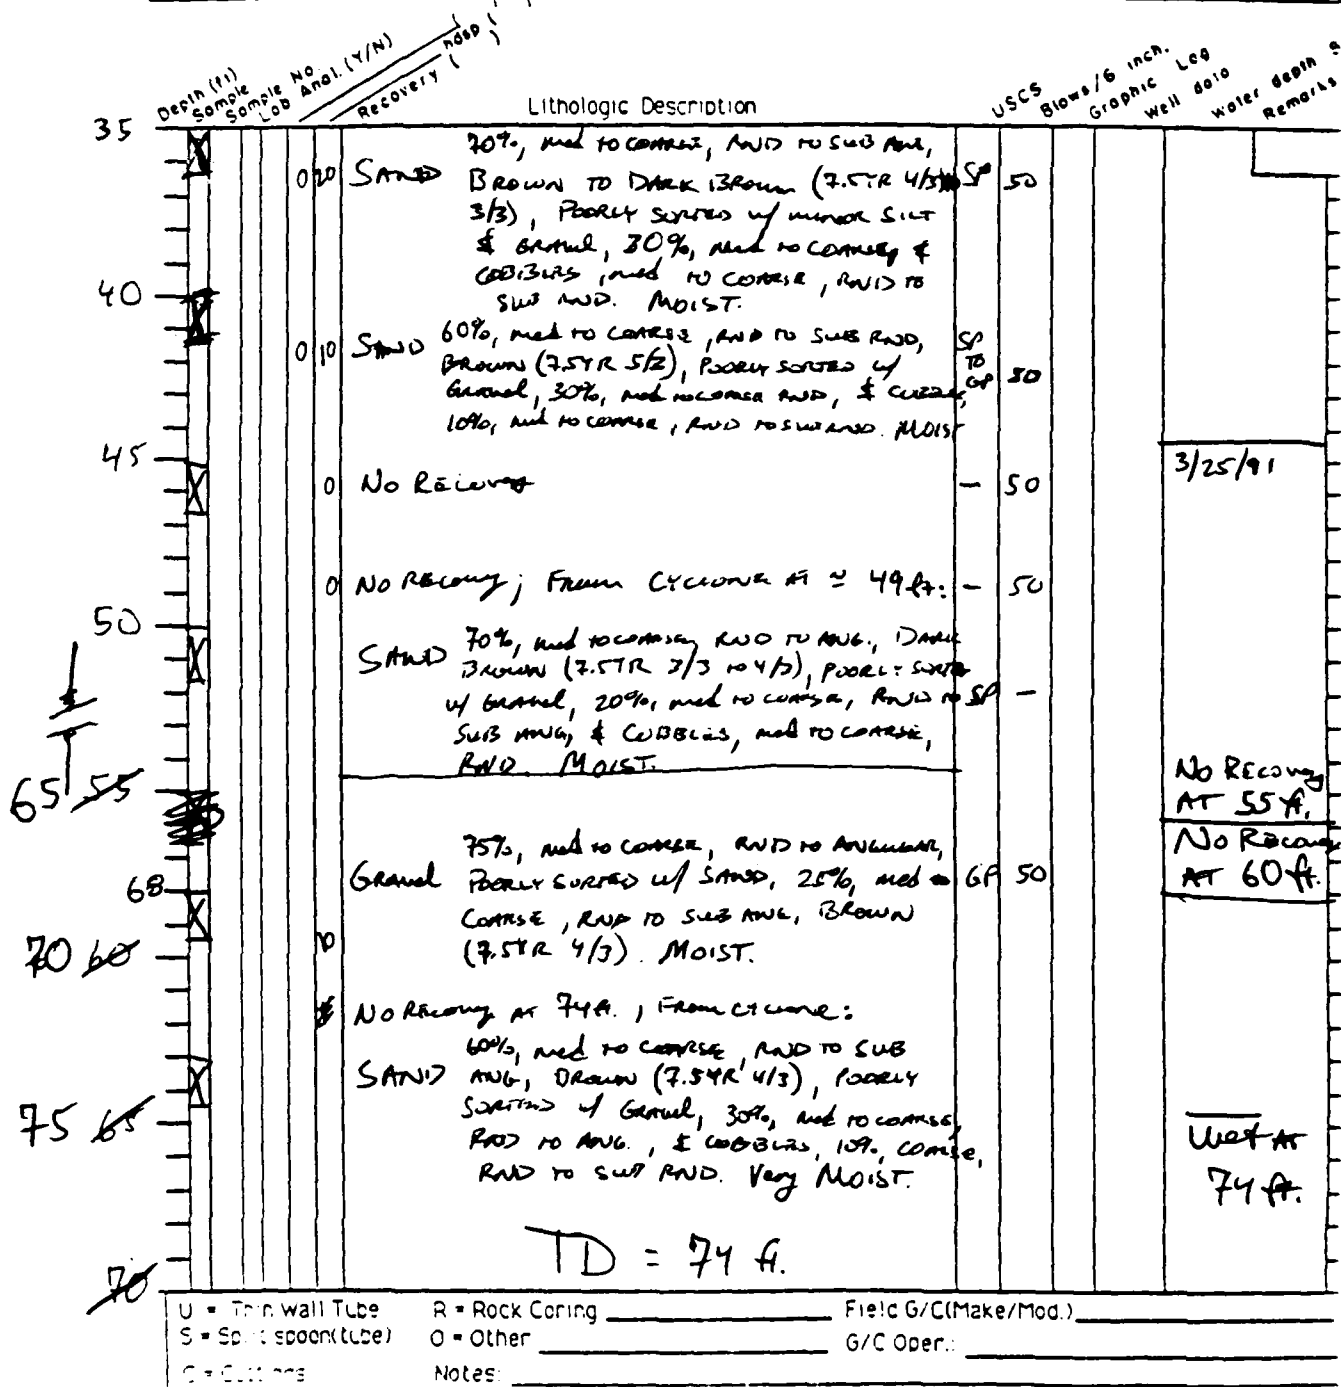 Depth (ft)
Sample
Sample No.
Lab Anal. (Y/N)
Recovery (
Lithologic Description
USCS
Blows/6 inch.
Graphic Log
Well data
Water depth
Remarks
35
70%, med to coarse, RND to SUB ANG,
0 20 SAND BROWN TO DARK BROWN (7.5YR 4/3 SP 50
3/3), POORLY SORTED w/ MINOR SILT
& GRAVEL, 30%, med to coarse, &
COBBLES, med to COARSE, RND TO
40
SUB RND. MOIST.
0 10 SAND 60%, med to COARSE, RND TO SUB RND, SP
BROWN (7.5YR 5/2), POORLY SORTED w/ TO
GRAVEL, 30%, med to coarse RND, & COBBLES, GP 50
10%, med to coarse, RND TO SUB RND. MOIST
45
3/25/91
0 NO RECOVERY - 50
0 NO RECOVERY; FROM CYCLONE AT ≈ 49 ft: - 50
50
70%, med to coarse, RND TO ANG., DARK
SAND BROWN (7.5YR 3/3 to 4/3), POORLY SORTED
w/ GRAVEL, 20%, med to coarse, RND to SP -
SUB ANG, & COBBLES, med to COARSE,
RND. MOIST.
65 55
No RECOVERY
AT 55 ft.
No Recovery
AT 60 ft.
75%, med to COARSE, RND TO ANGULAR,
68 GRAVEL POORLY SORTED w/ SAND, 25%, med to GP 50
COARSE, RND TO SUB ANG, BROWN
70 60
(7.5YR 4/3). MOIST.
NO RECOVERY AT 74 ft., FROM CYCLONE:
60%, med to COARSE, RND TO SUB
SAND ANG, BROWN (7.5YR 4/3), POORLY
75 65
SORTED w/ GRAVEL, 30%, med to coarse,
RND TO ANG., & COBBLES, 10%, coarse,
RND TO SUB RND. Very MOIST.
Wet AT
74 ft.
TD = 74 ft.
70
U = Thin wall Tube R = Rock Coring Field G/C(Make/Mod.)
S = Split spoon(tube) O = Other G/C Oper.:
C = Cuttings Notes: